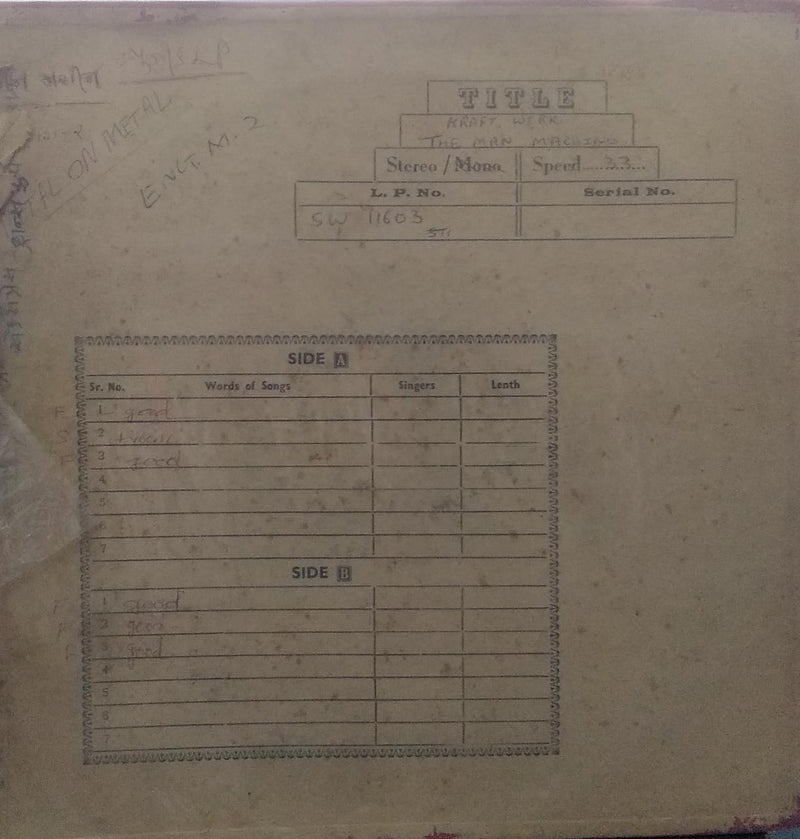 मशीन
LP
TAL ON METAL
ENGT. M. 2
TITLE
KRAFT WERK
THE MAN MACHINE
Stereo / Mono Speed.....33...
L. P. No. Serial No.
SW 11603
STI
SIDE A
Sr. No. Words of Songs Singers Lenth
F 1 good
S 2 + vocal
F 3 good
4
5
6
7
SIDE B
F 1 good
F 2 good
F 3 good
4
5
6
7